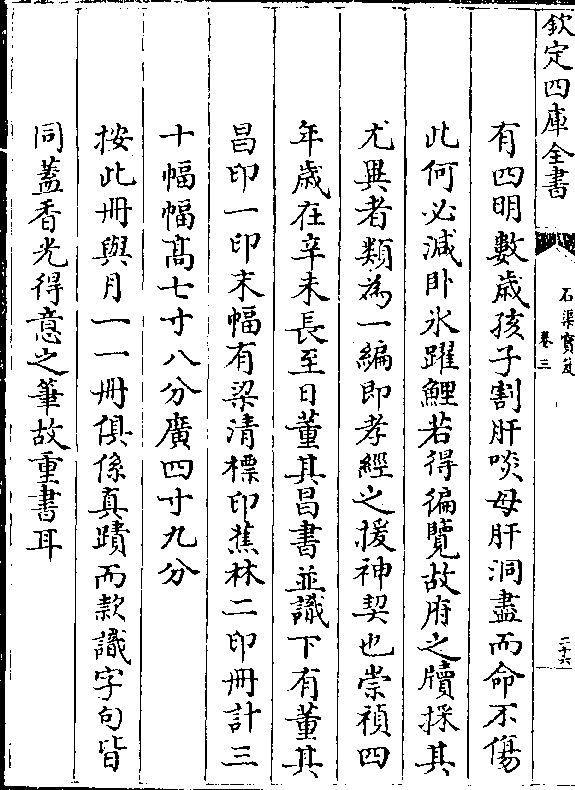 欽定四庫全書
石渠寶笈
卷三
二十六
有四明數歲孩子割肝啖母肝洞盡而命不傷
此何必減卧氷躍鯉若得徧覽故府之牘採其
尤異者類為一編即孝經之援神契也崇禎四
年歲在辛未長至日董其昌書並識下有董其
昌印一印末幅有梁清標印蕉林二印冊計三
十幅幅髙七寸八分廣四寸九分
按此冊與月一一冊俱係真蹟而款識字句皆
同蓋香光得意之筆故重書耳